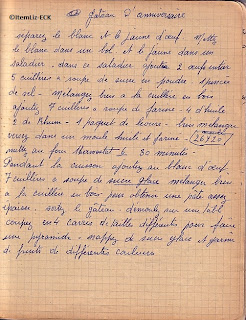 ©ItemLiz-ECK
gateau d'anniversaire
séparez le blanc et le jaune d'œuf. Mettez
le blanc dans un bol et le jaune dans un
saladier. dans ce saladier ajoutez 2 œufs entiers
6 cuillères à soupe de sucre en poudre. 1 pincée
de sel. Mélangez bien à la cuillère en bois
ajoutez 7 cuillères à soupe de farine. 4 d'huile
2 de Rhum. 1 paquet de levure. bien mélanger
versez dans un moule huilé et fariné (26x20)
mettre au four thermostat 6 30 minutes.
Pendant la cuisson ajoutez au blanc d'œuf
7 cuillères à soupe de sucre glace mélanger bien
à la cuillère en bois pour obtenir une pâte assez
épaisse. sortez le gâteau. démoulez sur une table
coupez en 4 carrés de taille différents pour faire
une pyramide. nappez de sucre glace et garnir
de fruits de différentes couleurs